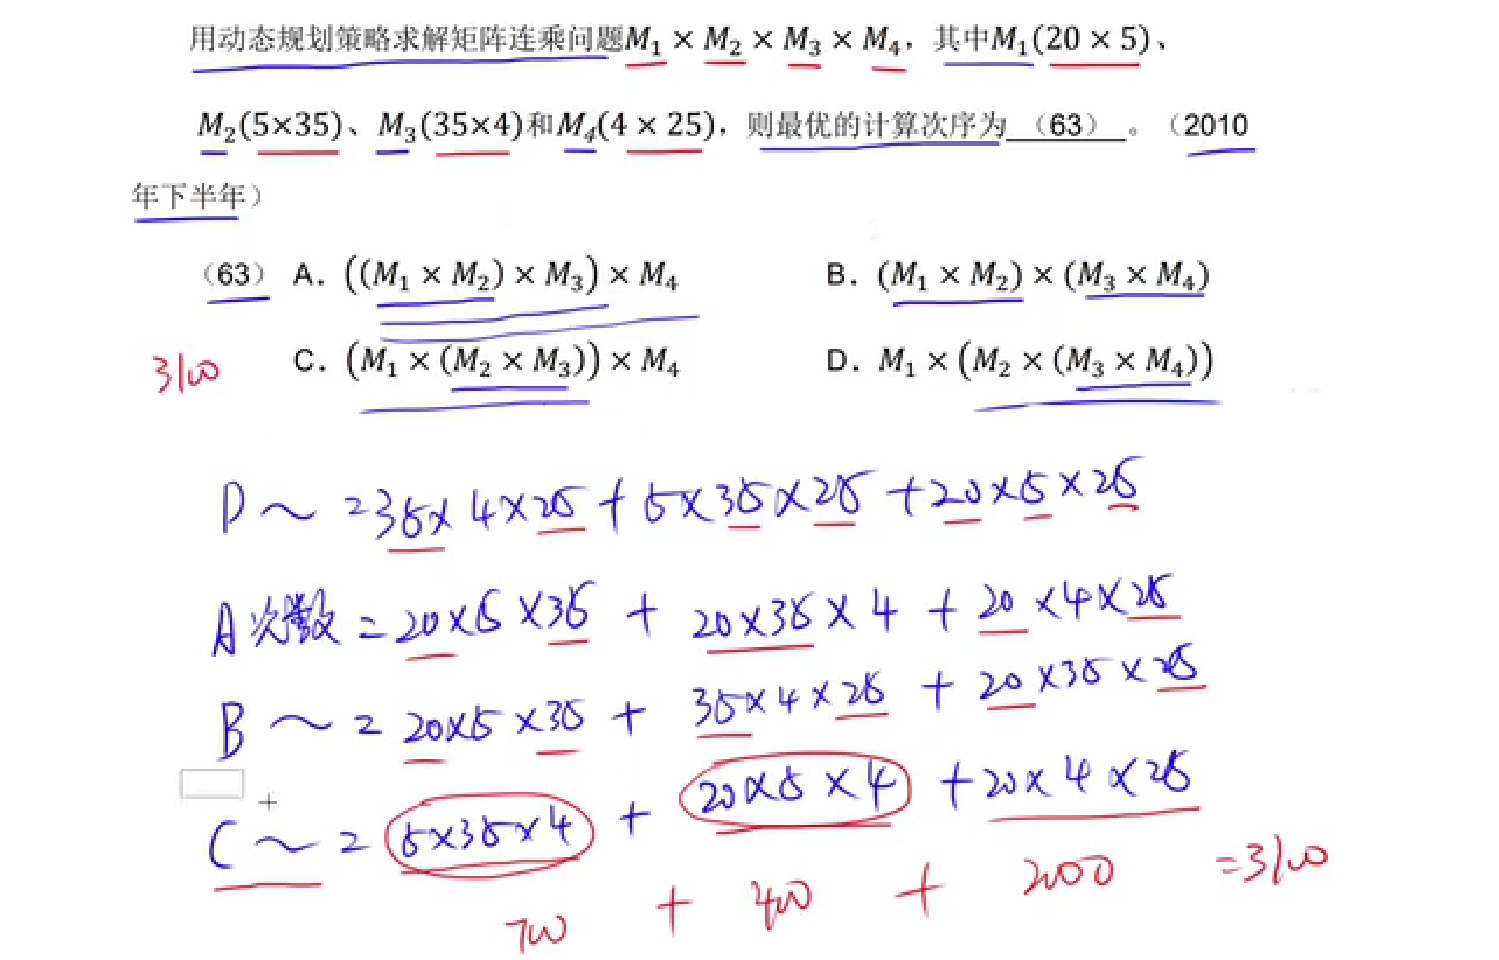 用动态规划策略求解矩阵连乘问题M₁ × M₂ × M₃ × M₄，其中M₁(20 × 5)、
M₂(5×35)、M₃(35×4)和M₄(4 × 25)，则最优的计算次序为 （63） 。（2010
年下半年）
（63） A. ((M₁ × M₂) × M₃) × M₄ B. (M₁ × M₂) × (M₃ × M₄)
3100 C. (M₁ × (M₂ × M₃)) × M₄ D. M₁ × (M₂ × (M₃ × M₄))
D ~ =35×4×25 + 5×35×25 +20×5×25
A次数=20×5×35 + 20×35×4 +20×4×25
B ~ = 20×5×35 + 35×4×25 + 20×35×25
C ~ = 5×35×4 + 20×5×4 +20×4×25
700 + 400 + 2000 =3100